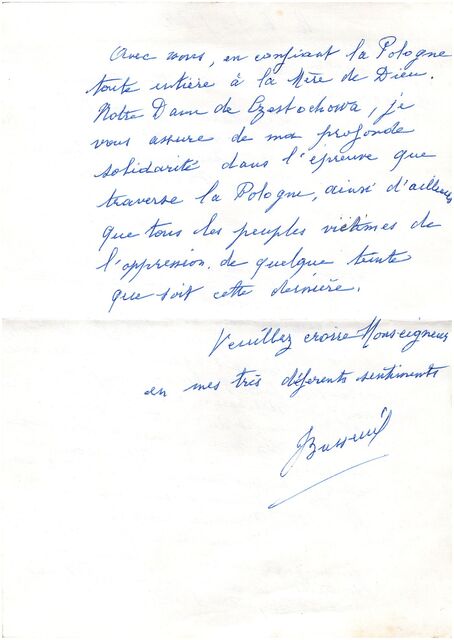 Avec vous, en confiant la Pologne
toute entière à la Mère de Dieu.
Notre Dame de Czestochowa, je
vous assure de ma profonde
solidarité dans l'épreuve que
traverse la Pologne, ainsi d'ailleurs
que tous les peuples victimes de
l'oppression. de quelque teinte
que soit cette dernière.
Veuillez croire Monseigneur
en mes très déférents sentiments